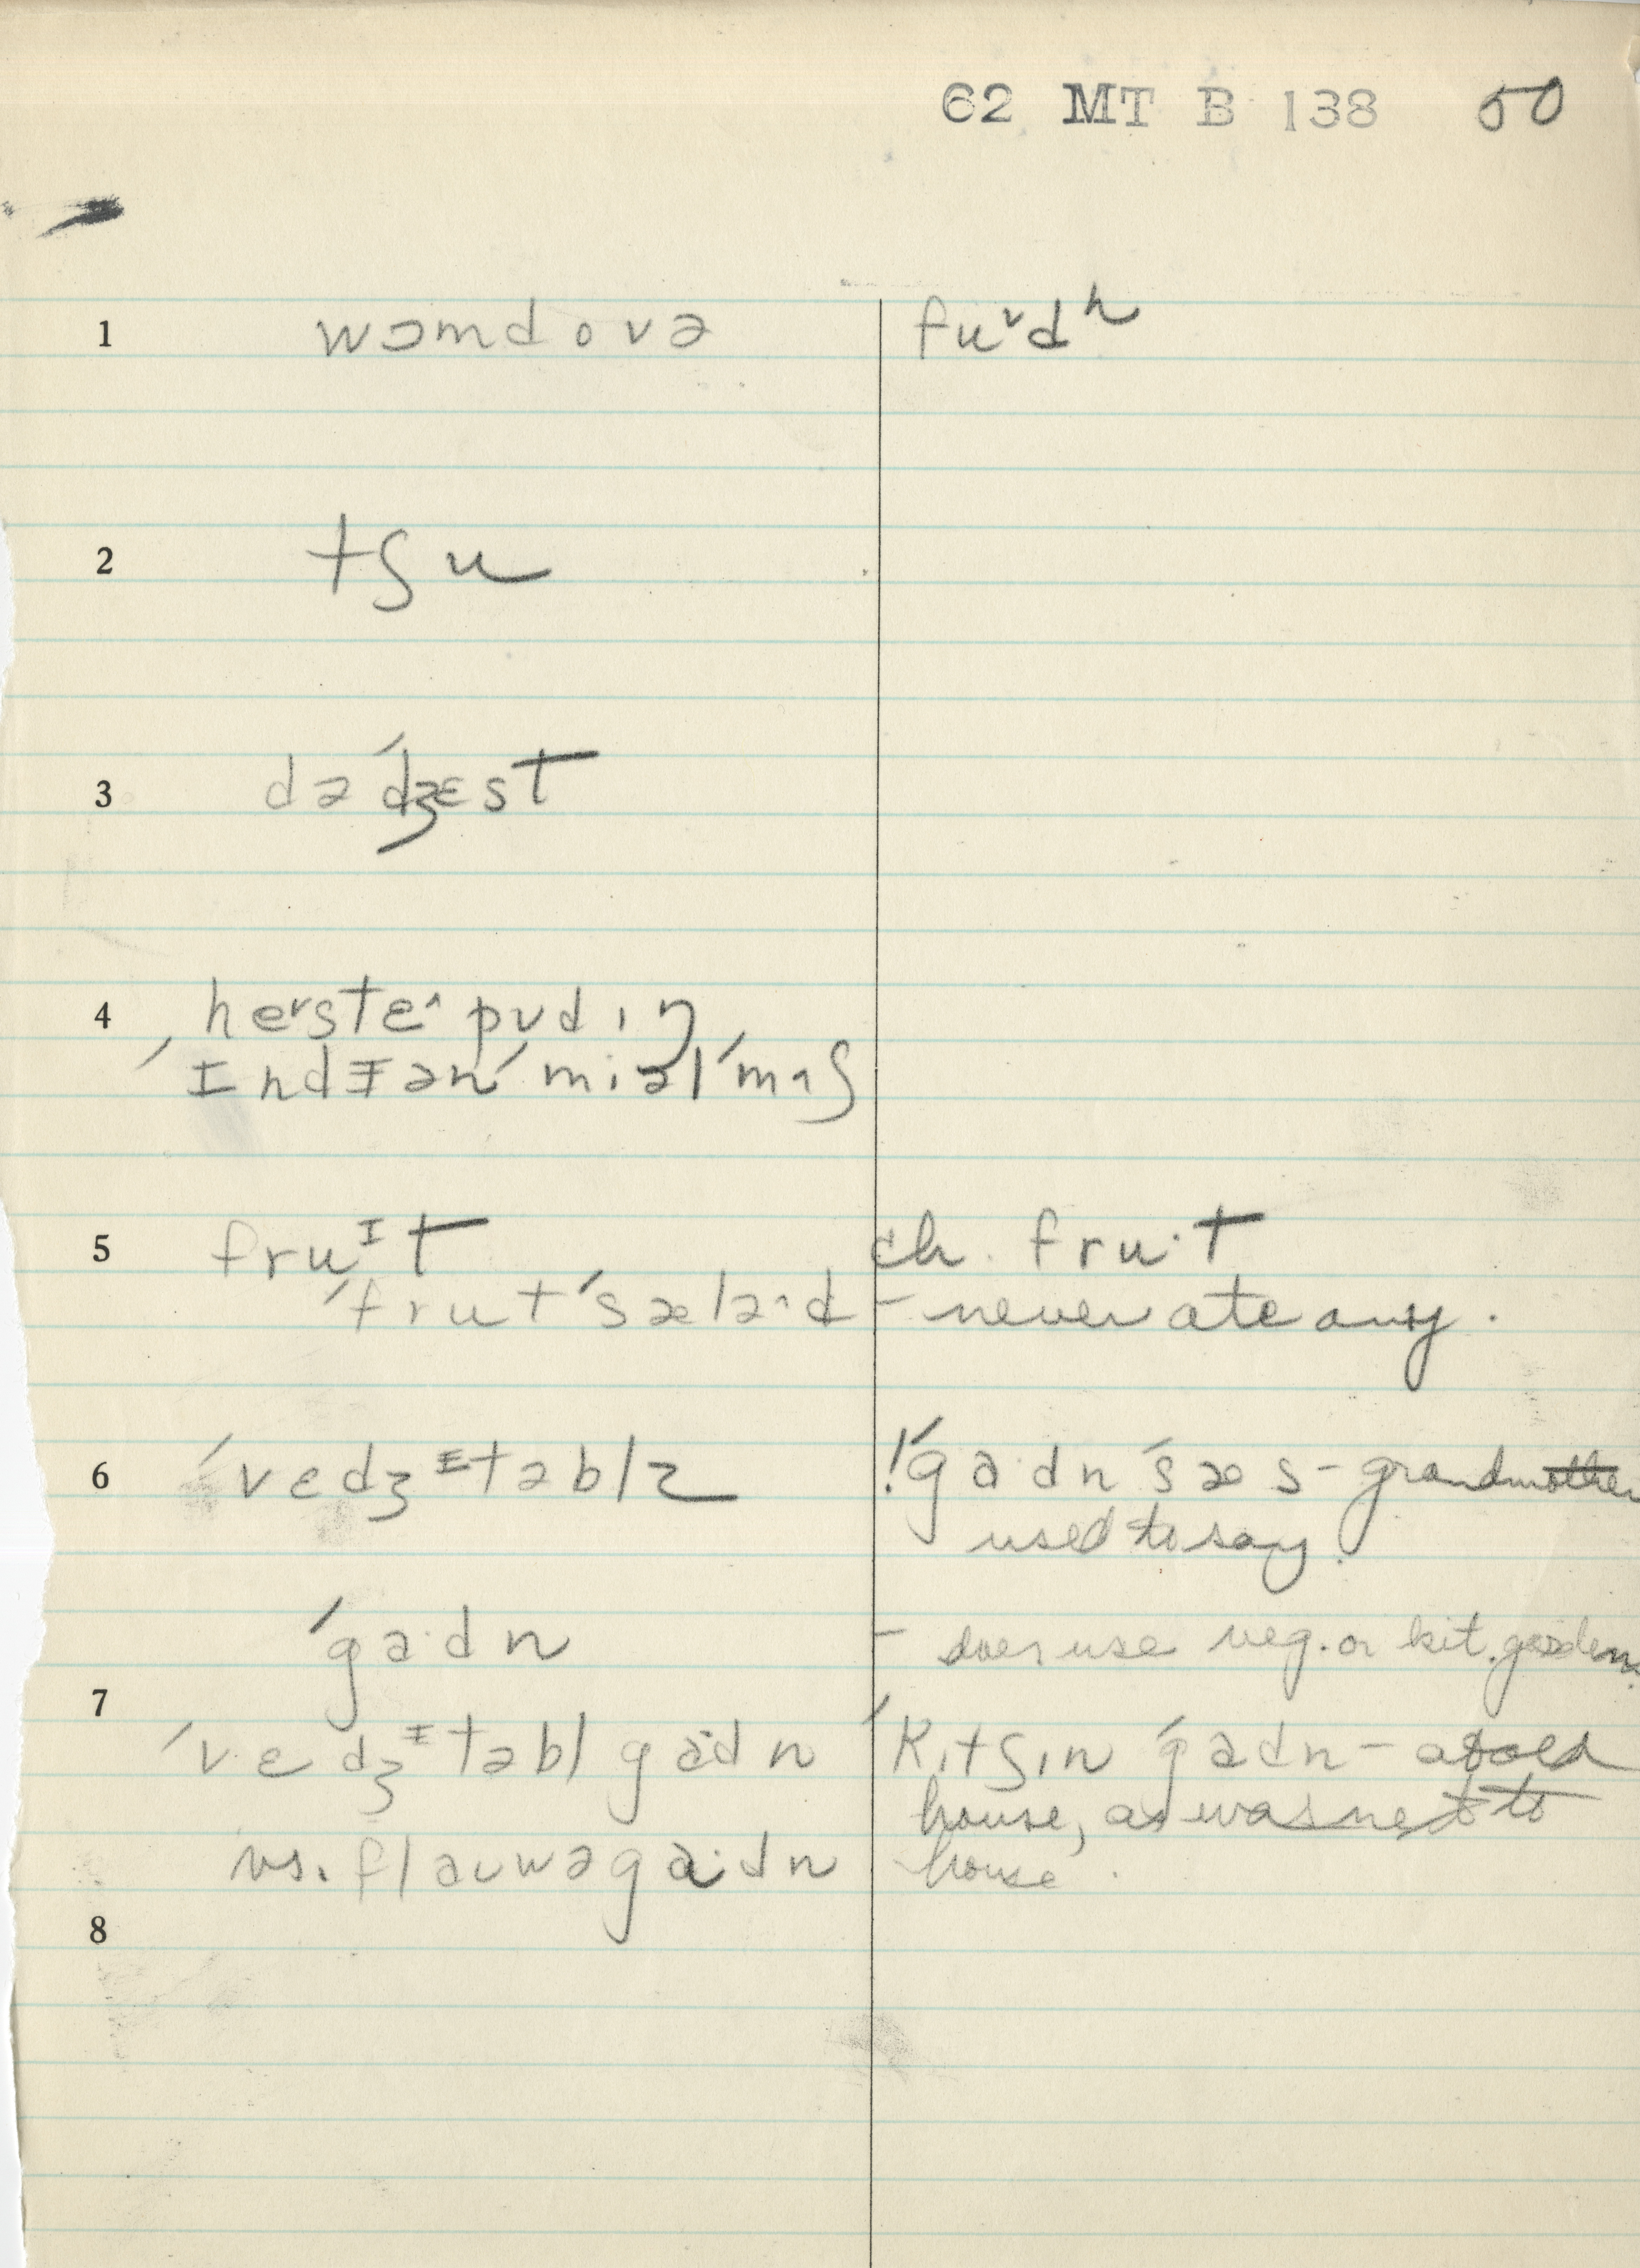 62 MT B 138 50
1 wɔmdovə fuᵛdʰ
2 tʃu
3 dəˊdʒɛst
4 heᵛsteˆ pʊdɪŋ
ˊɪndɪənˊmiəlˊmʌʃ
5 fruᴵt ch. fru·t
ˊfrutˊsæləˆd – never ate any.
6 ˊvɛdʒᴵtəblz !ˊga·dnˊsæs – grandmother
used to say.
ˊga·dn – does use veg. or kit. garden.
7
ˊvɛdʒᴵtəbl gadn ˊkɪtʃɪn ˊgadn – at old
house, as was next to
vs. flauwəga·dn house.
8